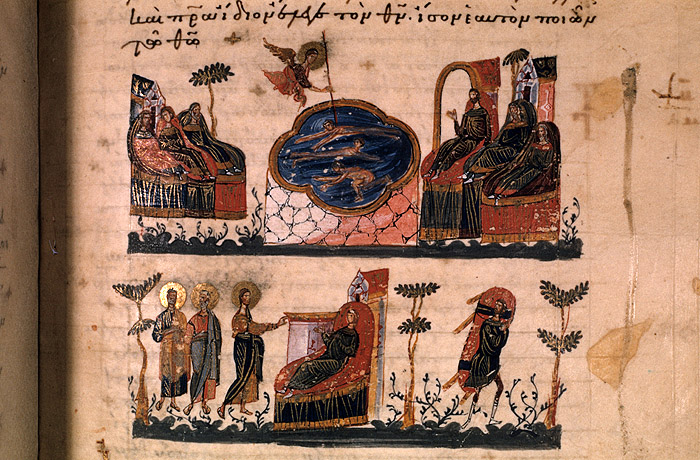 καὶ πρ̅α ἴδιον ἔλεγε τὸν θ̅ν. ἴσον ἑαυτὸν ποιῶν
τῶ θ̅ω